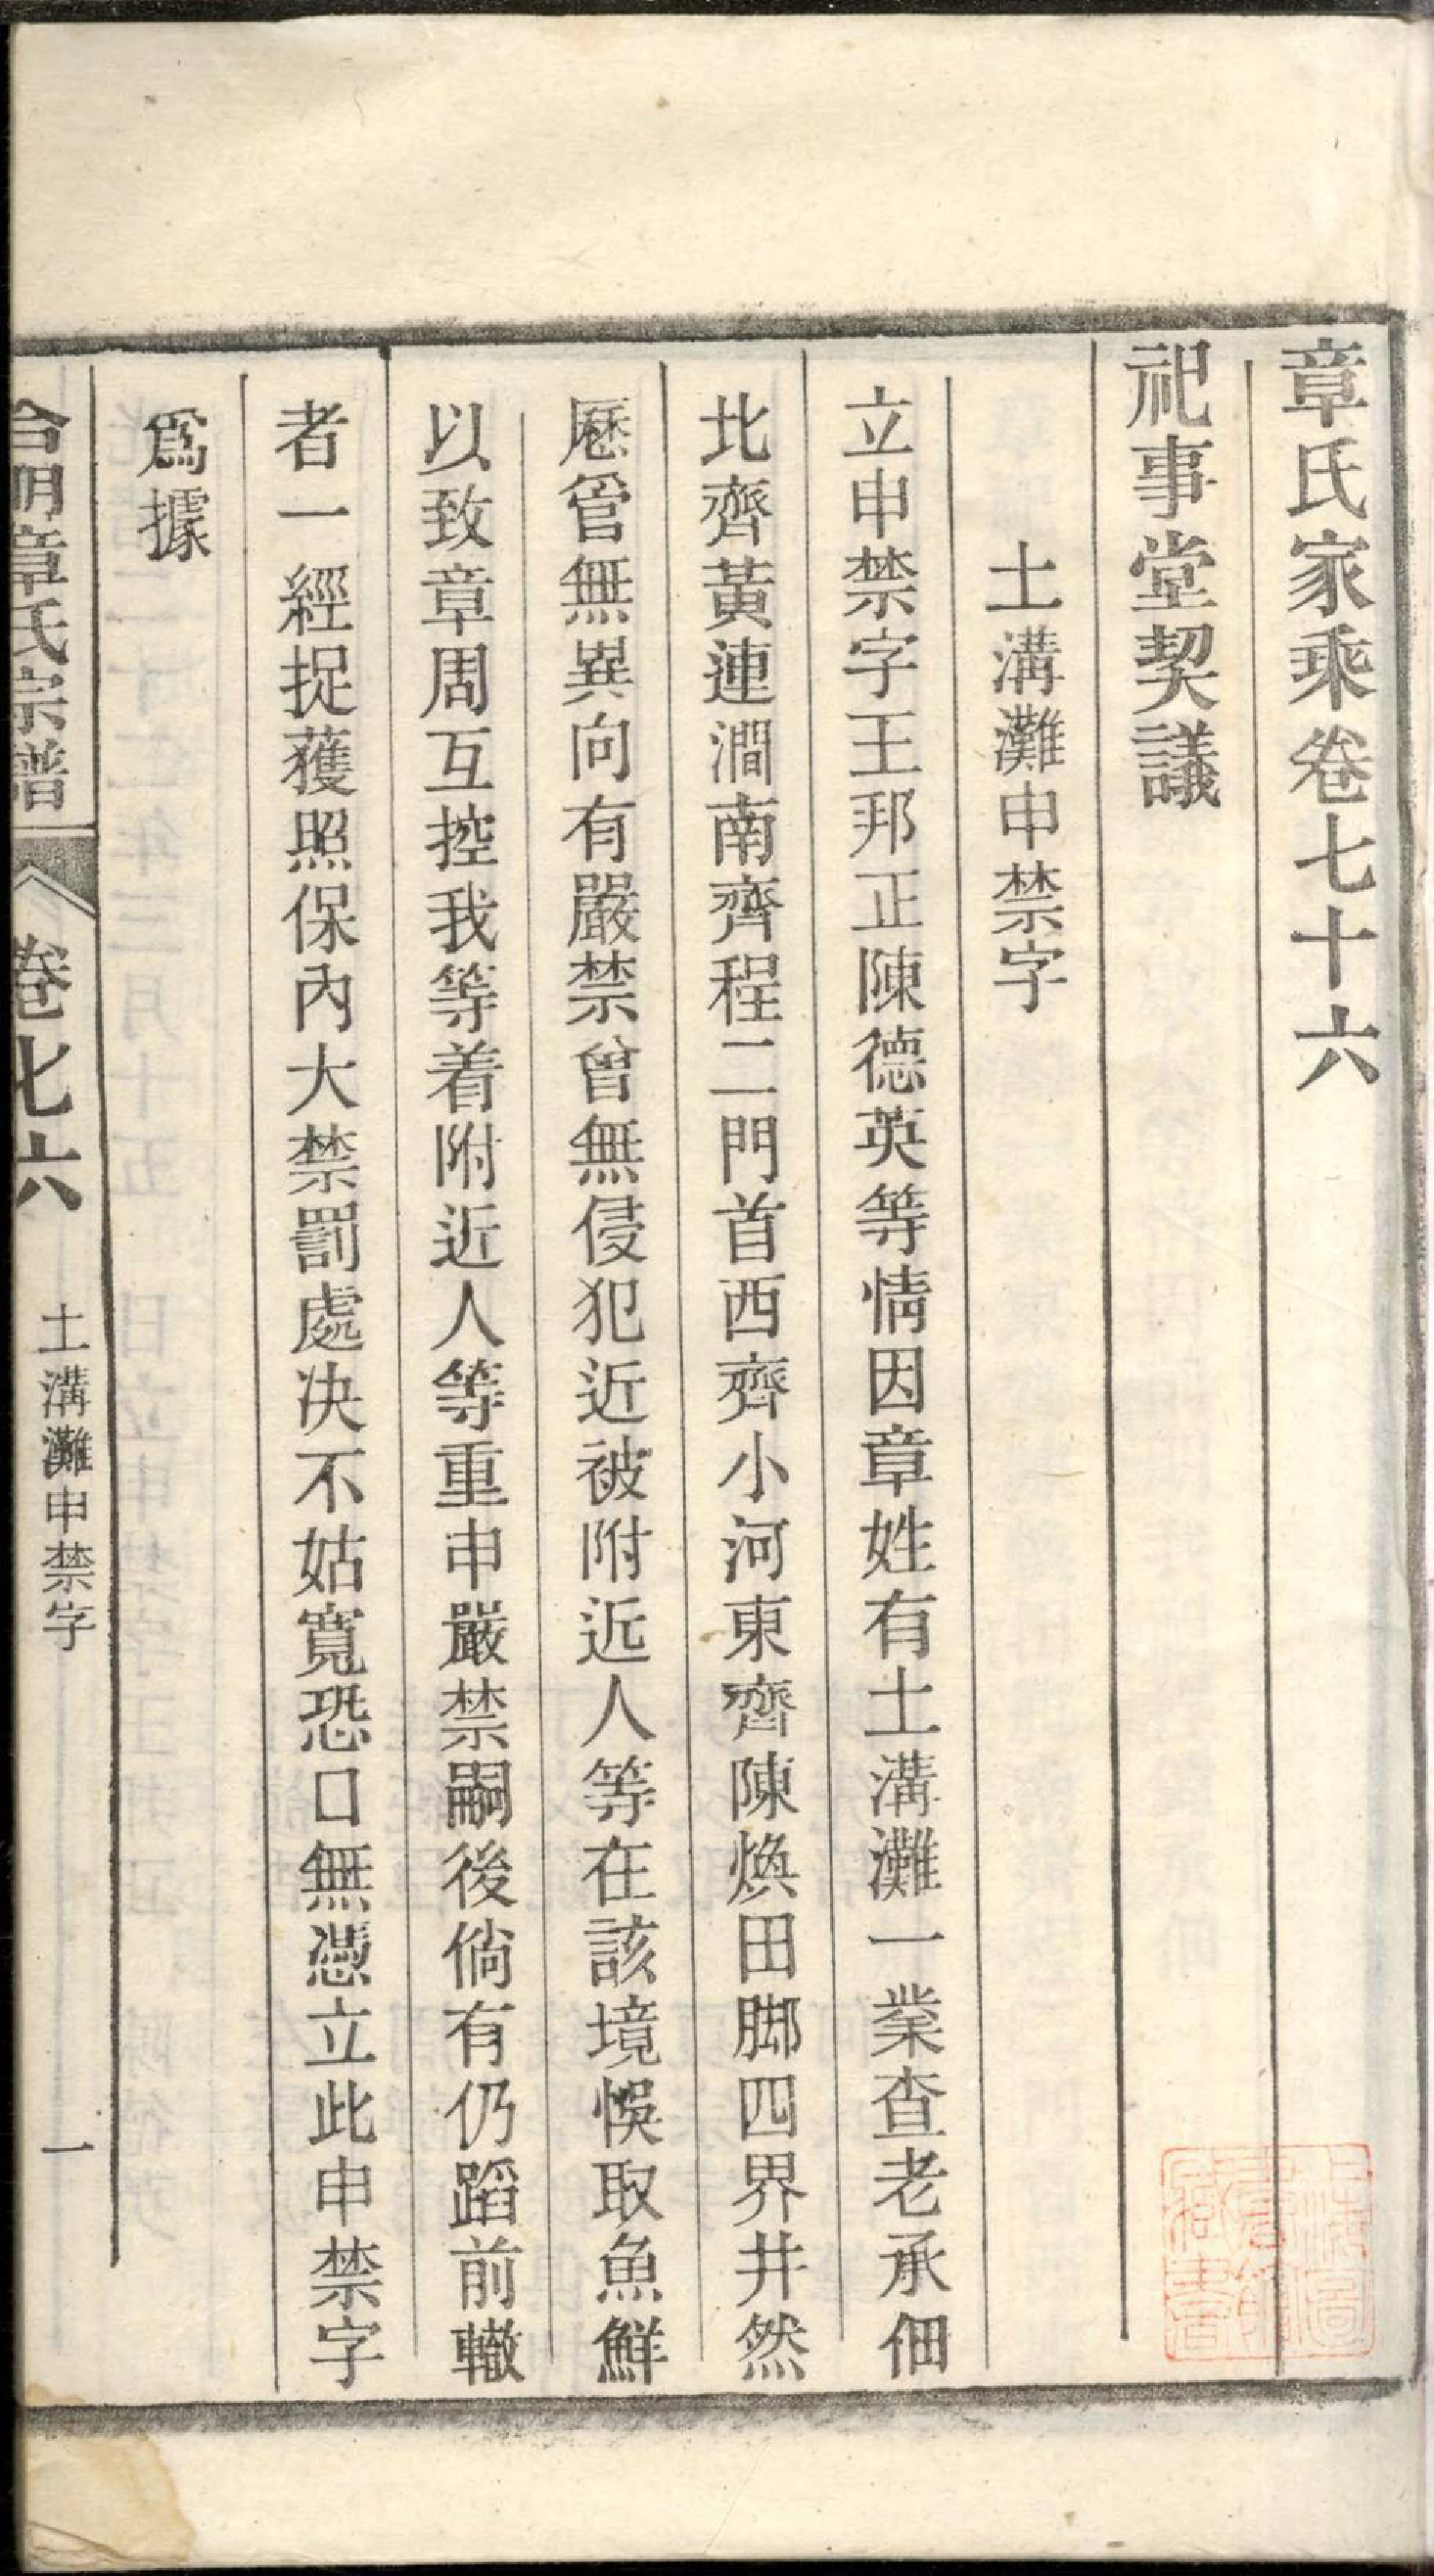 章氏家乘卷七十六
祀事堂契議
土溝灘申禁字
立申禁字王邦正陳德英等情因章姓有土溝灘一業查老承佃
北齊黃連澗南齊程二門首西齊小河東齊陳煥田脚四界井然
歷管無異向有嚴禁曾無侵犯近被附近人等在該境悞取魚鮮
以致章周互控我等着附近人等重申嚴禁嗣後倘有仍蹈前轍
者一經捉獲照保內大禁罰處决不姑寬恐口無憑立此申禁字
爲據
合明章氏宗譜
卷七六
土溝灘申禁字
一